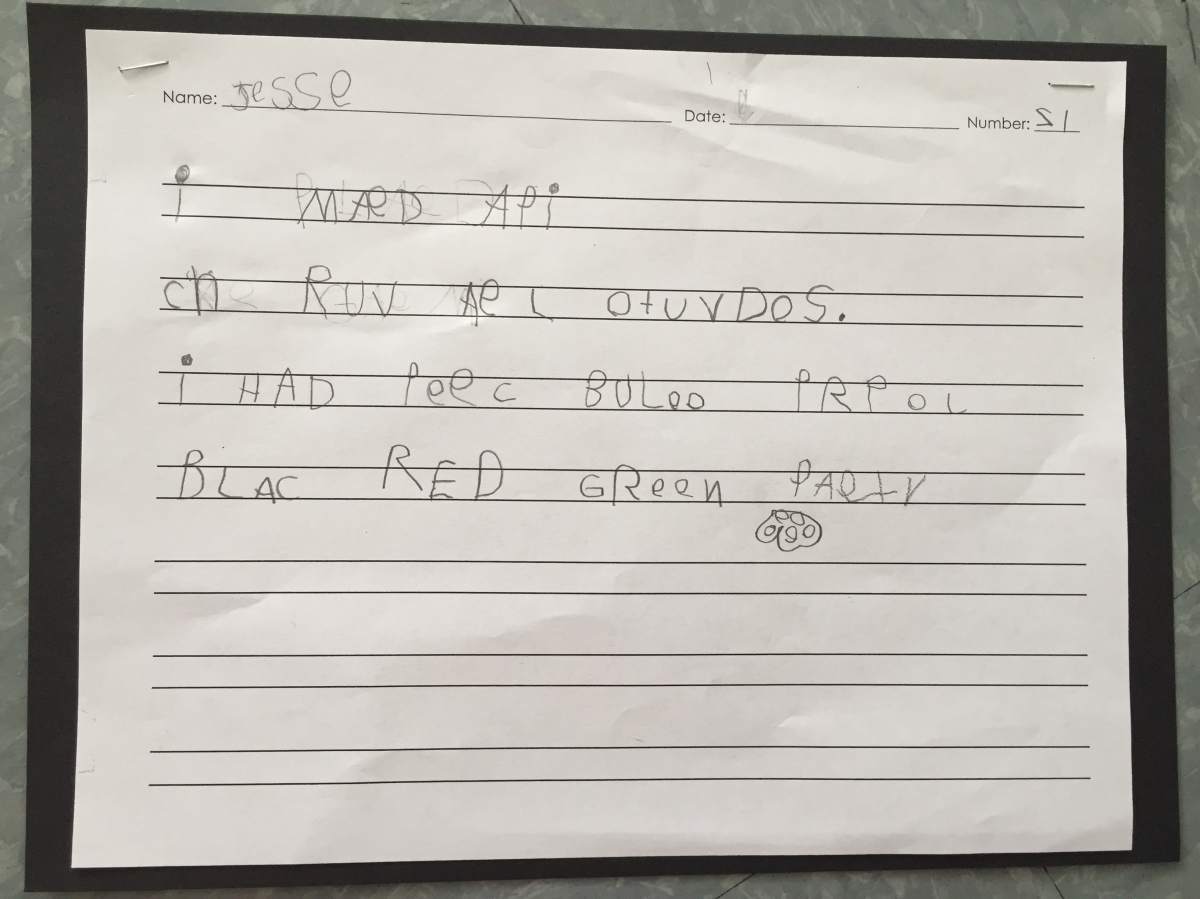 Name: Jesse Date: Number: 21
i MAeD APi
ch RUV Ael OtUVDOS.
i HAD Peec BULOO PRPOL
BLAC RED GReen PAetY